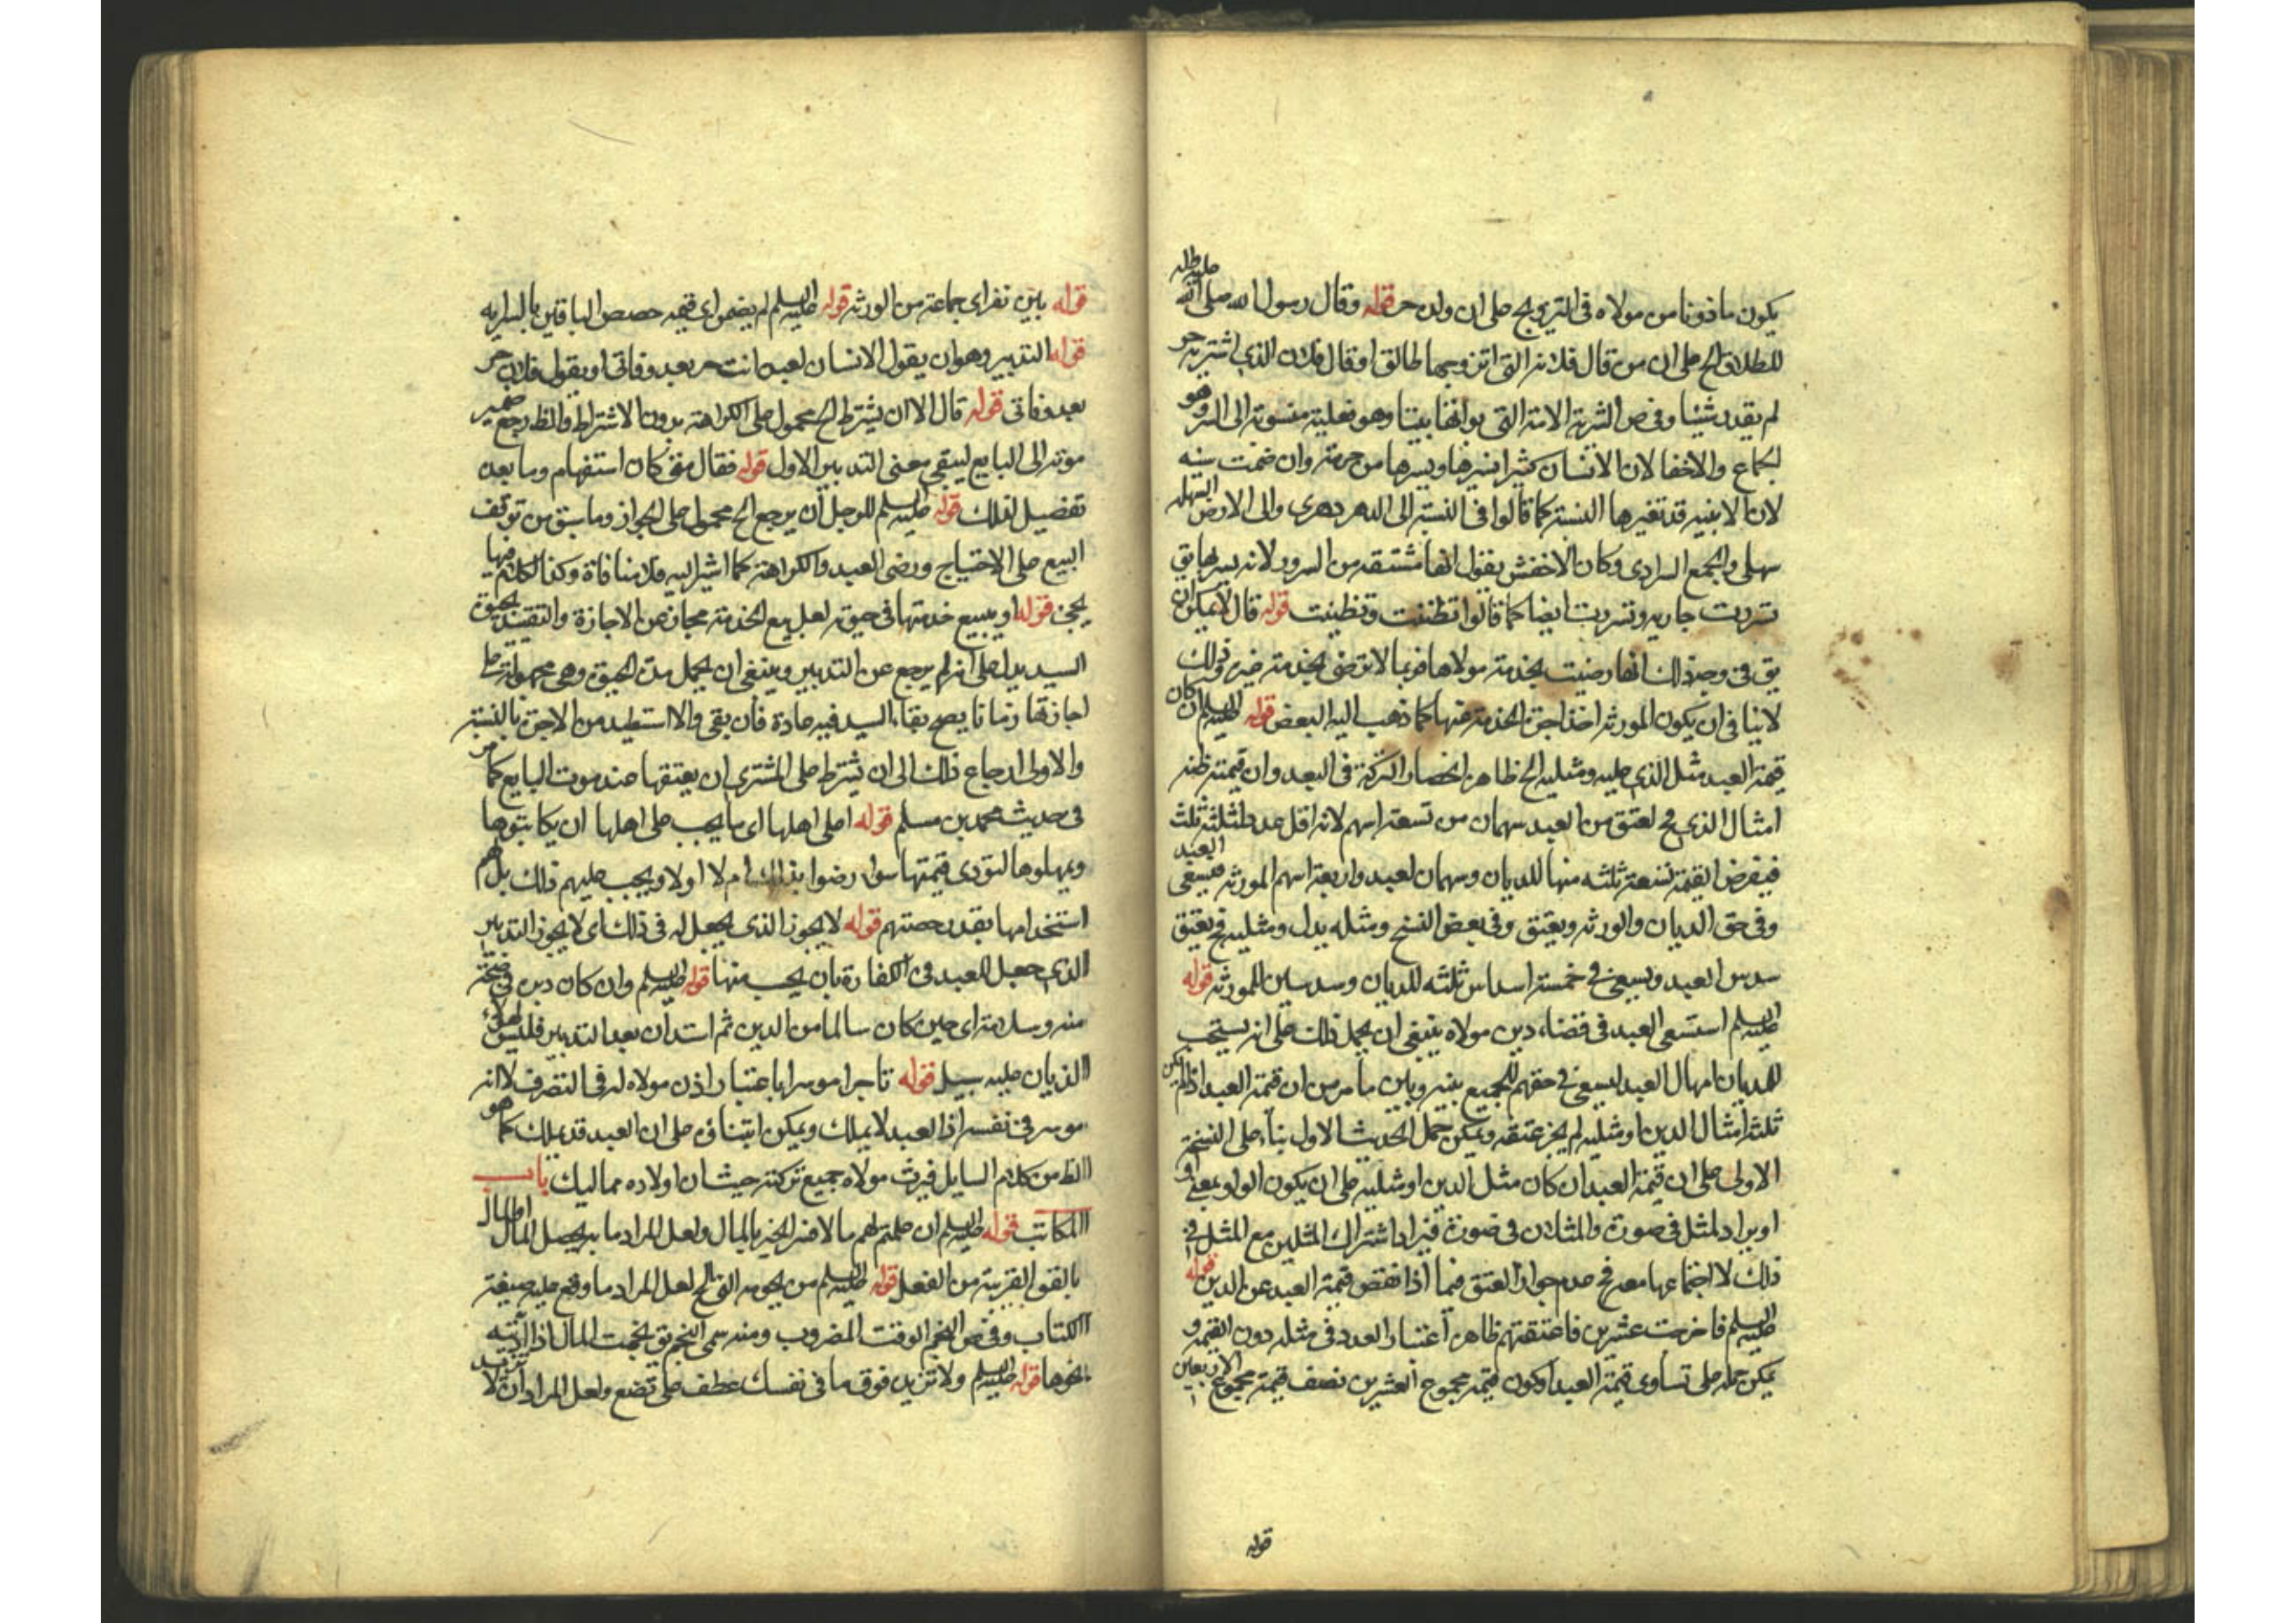 يكون ماذونا من مولاه فى التزويج على ان ولده حر قوله وقال رسول الله صلى الله عليه واله
للطلاق الخ على ان من قال فلانة التى اتزوجها طالق او قال فلان الذى اشتريه حر
لم يقدر شيئا وفى ص السرية الامة التى بوأتها بيتا وهو فعلية منسوبة الى السر وهو
الجماع والاخفا لان الانسان كثيرا يسرها ويسترها من حرمته وان ضمت سينه
لان الابنية قد تغير ها النسبة كما قالوا فى النسبة الى الدهر دهرى والى الارض السهلة
سهلى والجمع السرارى وكان الاخفش يقول انها مشتقة من السرور لانه يسر بها يق
تسررت جارية وتسريت ايضا كما قالوا تظننت وتظنيت قوله قال لا يمكن ان
يق فى وجه ذلك انها رضيت بخدمة مولاها فربما لا ترضى بخدمة غيره وذلك
لا ينافى ان يكون للورثة اخذ اجرة الخدمة عنها كما ذهب اليه البعض قوله عليه السلم ان كان
قيمة العبد مثل الذى عليه ومثليه الخ ظاهره انحصار التركة فى العبد وان قيمته ثلثة
امثال الذى فح لعتق من العبد سهمان من تسعة اسهم لانه اقل عدد لثلثه ثلث
فيفرض القيمة تسعة ثلثه منها للديان وسهمان للعبد واربعة اسهم للورثة فيسعى العبد
وفى حق الديان والورثة ويعتق وفى بعض النسخ ومثله بدل ومثليه فح يعتق
سدس العبد ويسعى فى خمسة اسداس ثلثه للديان وسدسين للورثة قوله
عليه السلم استسعى العبد فى قضاء دين مولاه ينبغى ان يحمل ذلك على انه يستحب
للديان امهال العبد ليسعى فى حقهم للجميع بينه وبين ما مر من ان قيمة العبد اذا لم يكن
ثلثة امثال الدين او مثليه لم يجز عتقه ويمكن حمل الحديث الاول بناء على النسخة
الاولى على ان قيمة العبد ان كان مثل الدين او مثليه على ان يكون الواو بمعنى او
او يراد المثل فى صورة والمثلان فى صورة فيراد اشتراك المثلين مع المثل فى
ذلك لا اجتماعها معه فح عدم جواز العتق فيما اذا نقص قيمة العبد عن الدين قوله
عليه السلم فاخرجت عشرين فاعتقتهم ظاهره اعتبار العدد فى مثله دون القيمة و
يمكن حمله على تساوى قيمة العبد او كون قيمة مجموع العشرين نصف قيمة مجموع الاربعين
قوله
قوله بين نفر اى جماعة من الورثة قوله عليه السلم لم يضمن اى قيمة حصص الباقين بالسراية
قوله التدبير وهو ان يقول الانسان لعبده انت حر بعد وفاتى او يقول فلان حر
بعد وفاتى قوله قال الا ان يشترط الخ محمول على الكراهة بدون الاشتراط والظ رجع ضمير
موته الى البايع ليبقى معنى التدبير الاول قوله فقال كان استفهام وما بعده
تفصيل لذلك قوله عليه السلم للرجل ان يرجع الخ محمول على الجواز وما سبق من توقف
البيع على الاحتياج ورضى العبد والكراهة كما اشير اليه فلا منافاة وكذا الكلام فيما
يجئ قوله او يبيع خدمتها فى حيوته لعل بيع الخدمة مجاز عن الاجازة والتقييد بحيوة
السيد يدل على انه لم يرجع عن التدبير وينبغى ان يحمل مدة الحيوة وهى مجهولة على
اجازتها زمانا يصح بقاء السيد فيه عادة فان بقى والا استعيد من الاجرة بالنسبة
والاولى ارجاع ذلك الى ان يشترط على المشترى ان يعتقها عند موت البايع كما مر
فى حديث محمد بن مسلم قوله اعلى اهلها اى ما يجب على اهلها ان يكاتبوها
ويمهلوها لتؤدى قيمتها سواء رضوا بذلك ام لا اولا ويجب عليهم ذلك بل لهم
استخدامها بقدر حصتهم قوله لا يجوز الذى يجعل له فى ذلك اى لا يجوز التدبير
الذى جعل للعبد فى الكفارة بان يحسب منها قوله عليه السلم وان كان دبره فى صحة
منه وسلامة اى حين كان سالما من الدين ثم استدان بعد التدبير فليس لهؤلاء
الديان عليه سبيل قوله تاجرا موسرا باعتبار اذن مولاه له فى التصرف لا انه
موسر فى نفسه اذ العبد لا يملك ويمكن ابتناؤه على ان العبد قد يملك كما هو
الظ من كلام السايل فيرث مولاه جميع تركته حيث ان اولاده مماليك باب
المكاتب قوله عليه السلم ان علمتم لهم مالا فسر الخير بالمال ولعل المراد ما به يحصل المال او المال
بالقوة القريبة من الفعل قوله عليه السلم من نجومه التى الخ لعل المراد ما وقع عليه صيغة
الكتاب وفى ص النجم الوقت المضروب ومنه سمى المنجم يق نجمت المال اذا اديته
نجوما قوله عليه السلم ولا تزيد فوق ما فى نفسك عطف على تضع ولعل المراد ان لا تزيد